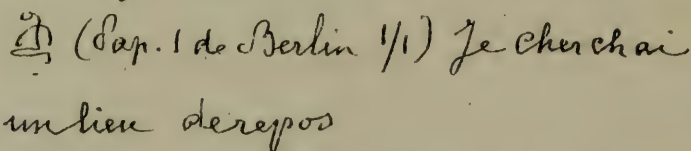 (Pap. 1 de Berlin 1/1) Je cherchai
un lieu de repos